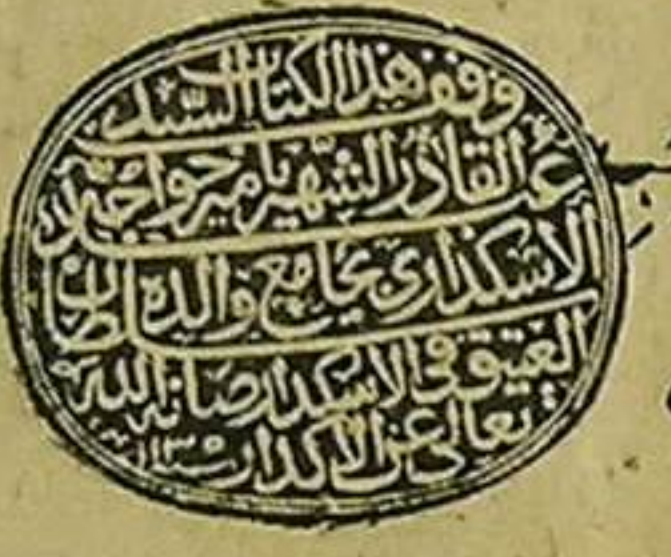 وقف هذا الكتاب السيد
عبد القادر الشهير بامير خواجه
الاسكدارى بجامع والده سلطان
العتيق فى الاسكدار صانه الله
تعالى عن الاكدار سنة